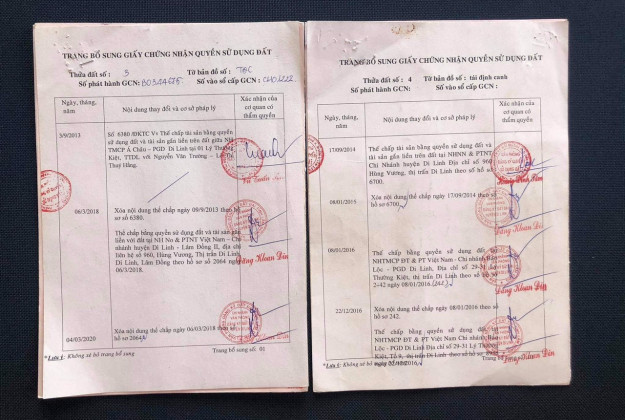 TRANG BỔ SUNG GIẤY CHỨNG NHẬN QUYỀN SỬ DỤNG ĐẤT
Thửa đất số: 3 Tờ bản đồ số: TĐC
Số phát hành GCN: Số vào sổ cấp GCN:
Ngày, tháng, năm
Nội dung thay đổi và cơ sở pháp lý
Xác nhận của cơ quan có thẩm quyền
3/9/2013
Số 6380 /ĐKTC Vv Thế chấp tài sản bằng quyền
sử dụng đất và tài sản gắn liền trên đất giữa NH
TMCP Á Châu – PGD Di Linh tại 01 Lý Thường
Kiệt, TTDL với Nguyễn Văn Trường –
Thuý Hằng.
06/3/2018
Xóa nội dung thế chấp ngày 09/9/2013 theo hồ
sơ số 6380.
Thế chấp bằng quyền sử dụng đất và tài sản gắn
liền với đất tại NH No & PTNT Việt Nam – Chi
nhánh huyện Di Linh – Lâm Đồng II, địa chỉ
liên hệ số 960, Hùng Vương, Thị trấn Di
Linh, Di Linh, Lâm Đồng theo hồ sơ số 2064 ngày
06/3/2018.
Đặng Khoan Dịp
04/03/2020
Xóa nội dung thế chấp ngày 06/03/2018 theo
hồ sơ 2064
*Lưu ý: Không xé bỏ trang bổ sung
Trang bổ sung số: 01
TRANG BỔ SUNG GIẤY CHỨNG NHẬN QUYỀN SỬ DỤNG ĐẤT
Thửa đất số: 4 Tờ bản đồ số: tái định canh
Số phát hành GCN: Số vào sổ cấp GCN:
Ngày, tháng, năm
Nội dung thay đổi và cơ sở pháp lý
Xác nhận của cơ quan có thẩm quyền
17/09/2014
Thế chấp bằng quyền sử dụng đất và
tài sản gắn liền trên đất tại NHNN & PTNT
Chi Nhánh huyện Di Linh Địa chỉ số 960
Hùng Vương, thị trấn Di Linh theo hồ sơ số
6700.
08/01/2015
Xóa nội dung thế chấp ngày 17/09/2014 theo
hồ sơ 6700
08/01/2016
Thế chấp bằng quyền sử dụng đất tại
NHTMCP ĐT & PT Việt Nam - Chi nhánh Bảo
Lộc - PGD Di Linh, Địa chỉ số 29-31
Thường Kiệt, thị trấn Di Linh theo hồ sơ số
2-42 ngày 08/01/2016. (242)
Đặng Khoan Dịp
22/12/2016
Xóa nội dung thế chấp ngày 08/01/2016 theo
hồ sơ 242.
Thế chấp bằng quyền sử dụng đất tại
NHTMCP ĐT & PT Việt Nam Chi nhánh Bảo
Lộc - PGD Di Linh Địa chỉ số 29-31 Lý Thường
Kiệt, Tổ 9, thị trấn Di Linh theo hồ sơ số